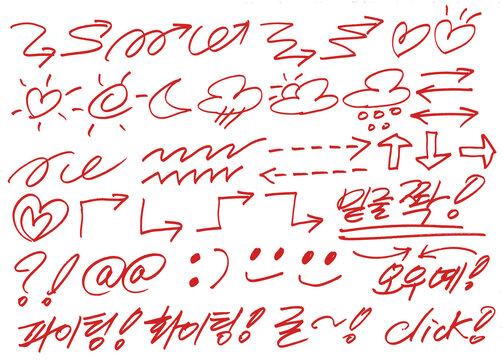 밑줄 쫙!
?! @@ :)
오우예!
파이팅! 화이팅! 굳~! click!